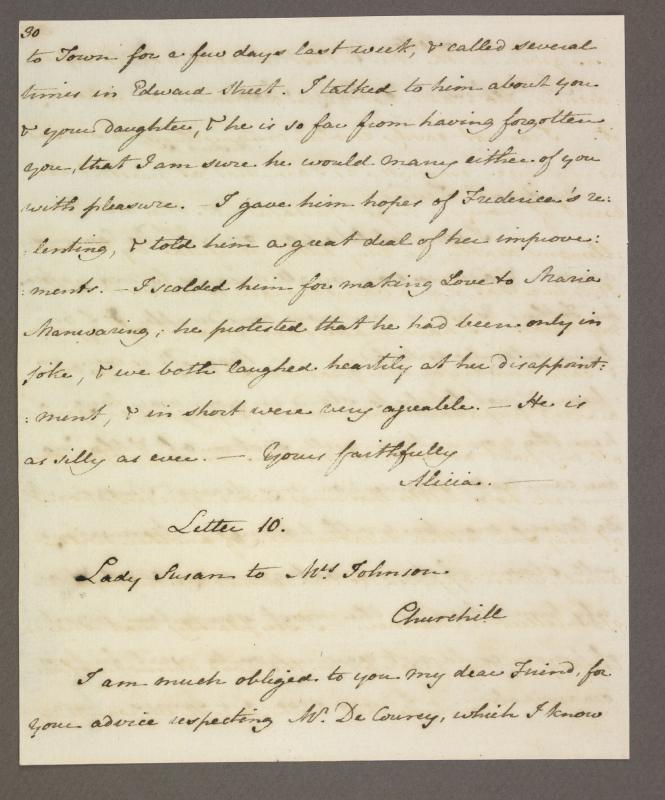 30
to Town for a few days last week, & called several
times in Edward Street. I talked to him about you
& your daughter, & he is so far from having forgotten
you, that I am sure he would marry either of you
with pleasure. – I gave him hopes of Frederica's re:
:lenting, & told him a great deal of her improve:
:ments. – I scolded him for making Love to Maria
Manwaring; he protested that he had been only in
joke, & we both laughed heartily at her disappoint:
:ment, & in short were very agreable. – He is
as silly as ever. – Yours faithfully
Alicia. –
Letter 10.
Lady Susan to Mrs Johnson
Churchill
I am much obliged to you my dear Friend, for
your advice respecting Mr. De Courcy, which I know